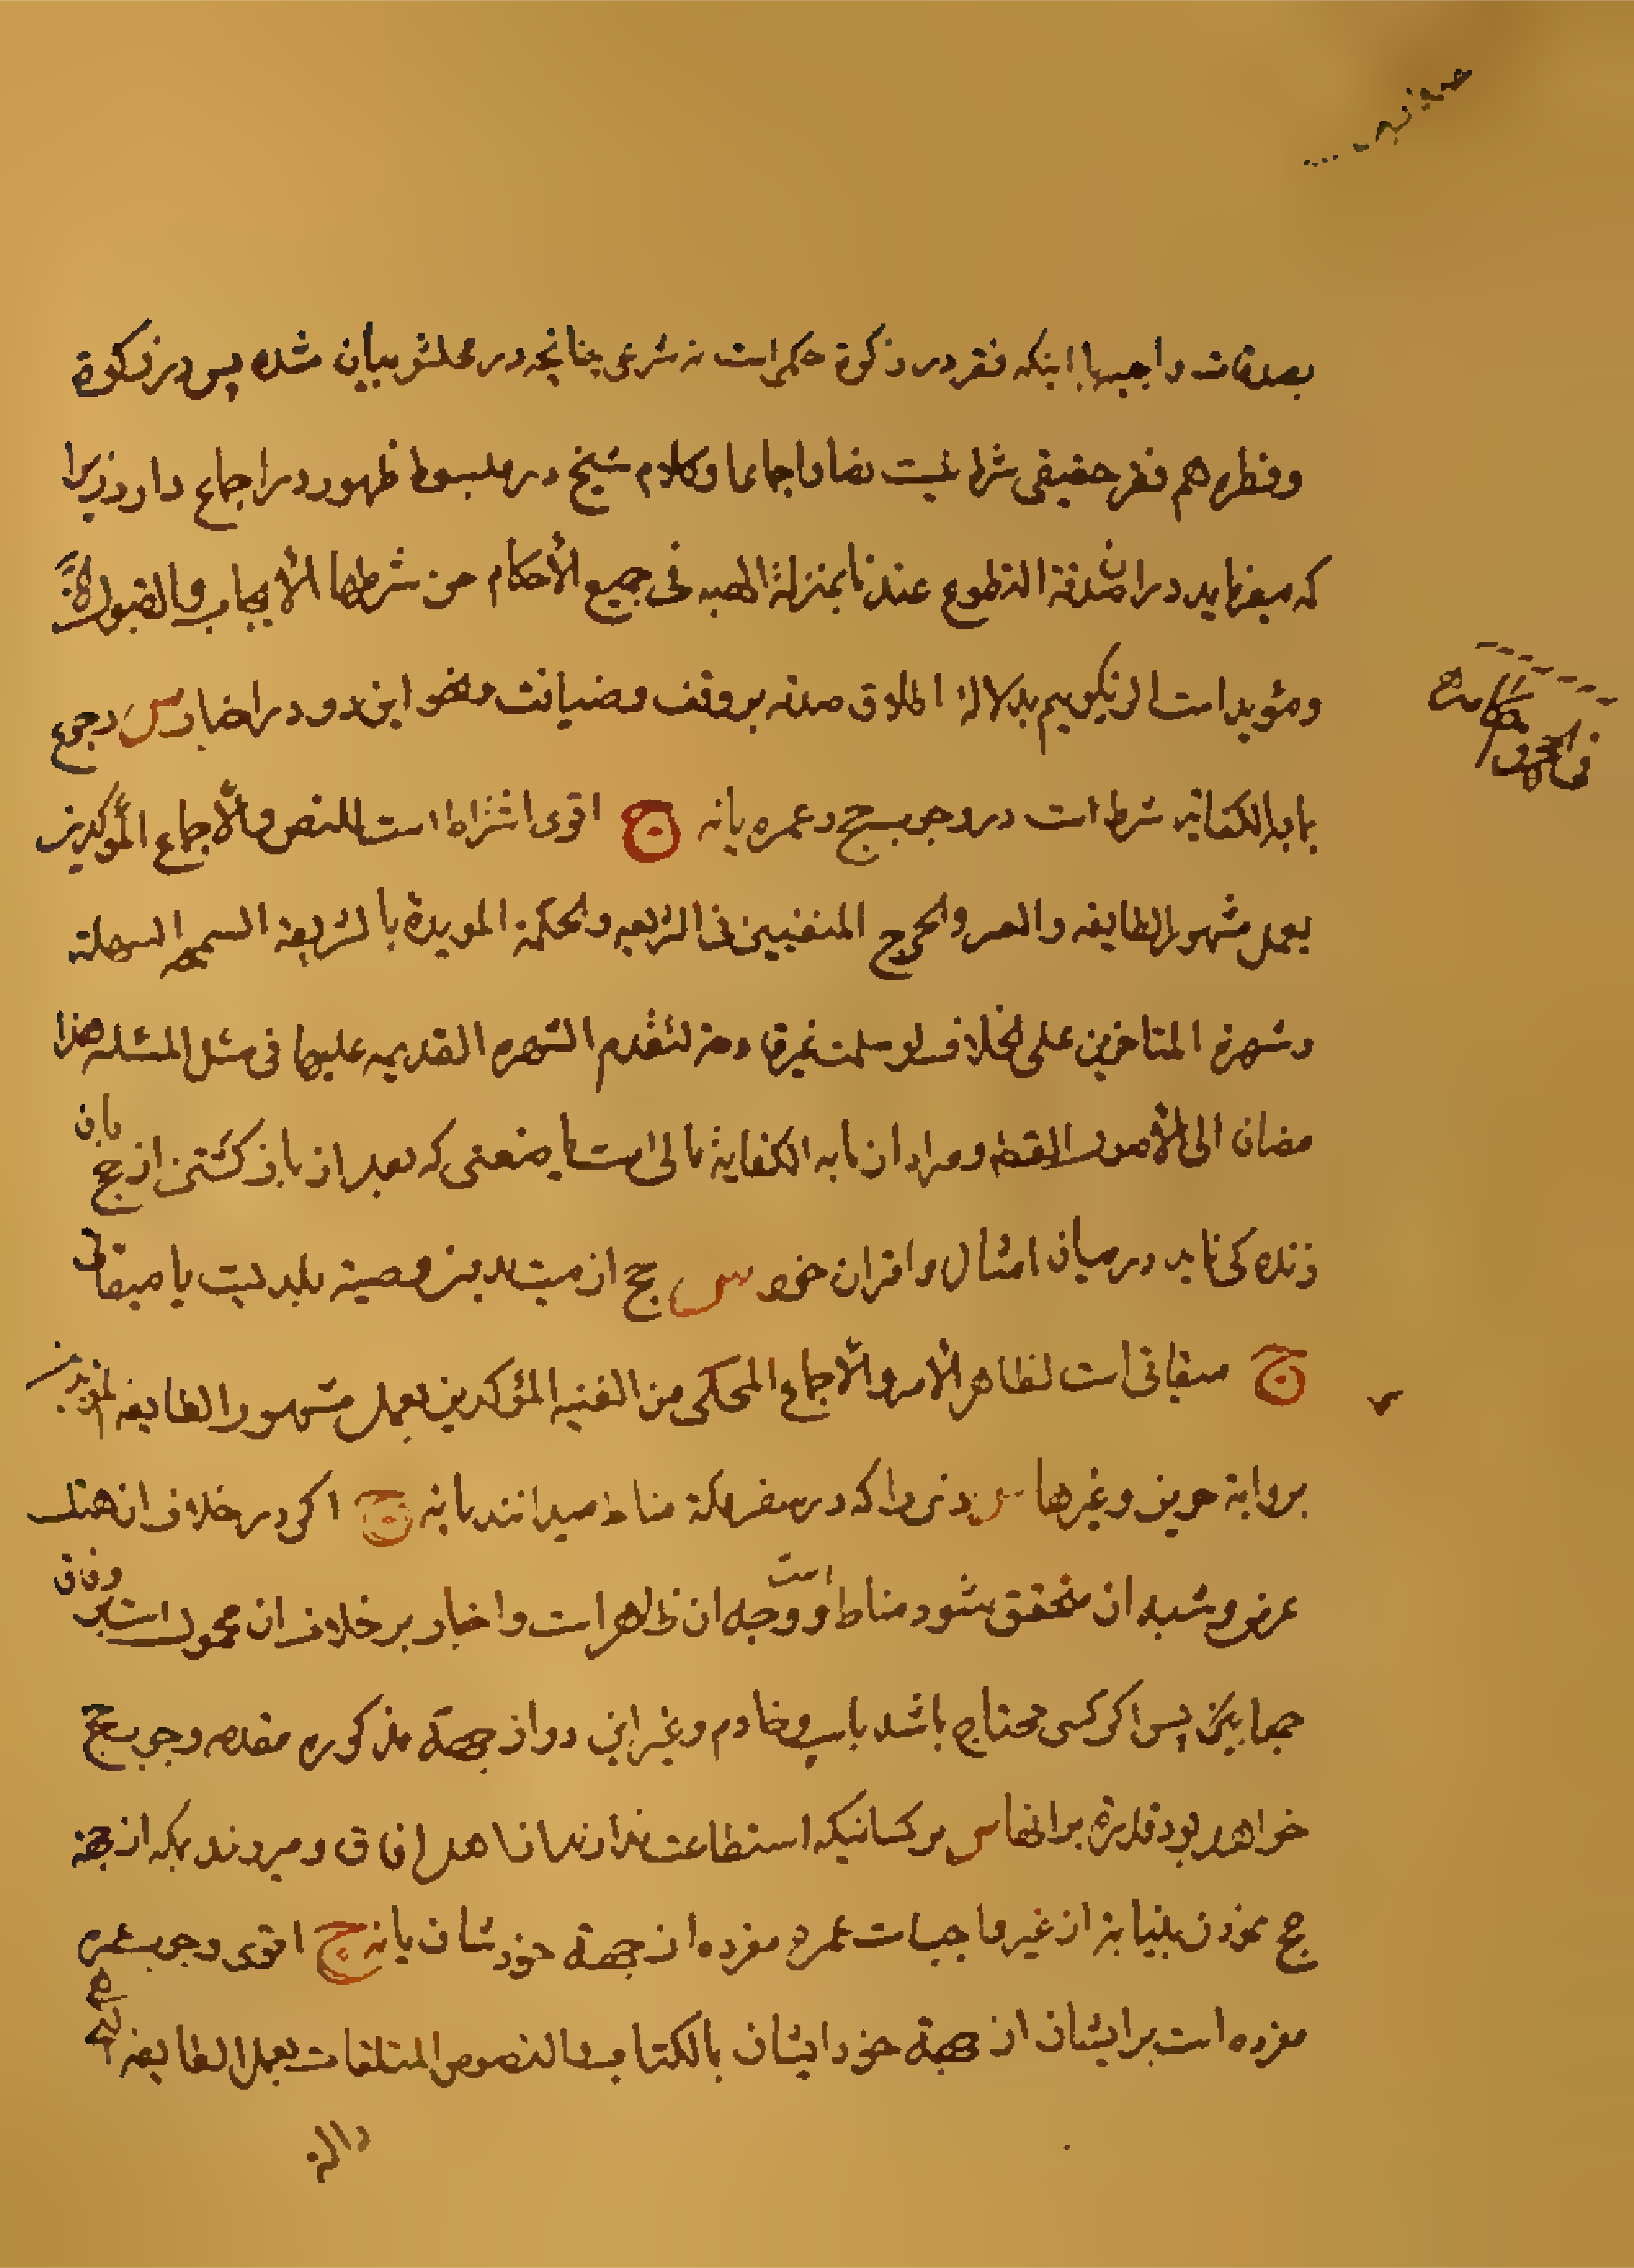 بصدقات واجبها با اینکه فقر در زکوة حکمی است نه شرعی چنانچه در محلش بیان شده پس در زکوة
وفطره هم فقر حقیقی شرط نیست نصا واجماعا وکلام شیخ در مبسوط ظهور در اجماع دارد زیرا
که میفرماید در ان صدقة التطوع عندنا بمنزلة الهبه فی جمیع الأحکام من شرطها الأیجاب والقبول
ومؤید است اگر نگوییم بدلالة اطلاق صدقه بر وقف وضیافت ونحو این دو در اخبار س رجوع
بما به الکفایة شرط است در وجوب حج وعمره یا نه ج اقوی اشتراط است للنص والأجماع المؤکدین
بعمل مشهور الطایفه والعسر والحرج المنفیین فی الشریعه والحکمة المویدة بالشریعة السمحه السهلة
وشهرة المتاخرین علی الخلاف لو سلمت غیر قادحة لتقدم الشهره القدیمه علیها فی مثل المسئله هذا
مضاف الی الأصول ومراد از ما به الکفایة مالی است باینمعنی که بعد از باز کشتن از حج بان
زنده کی نماید در میان امثال واقران خود س حج از میت بدون وصیة بلدیست یا میقاتی
ج میقاتی است لظاهر الأمر والأجماع المحکی من الغنیه المؤکدین بعمل مشهور الطایفه المؤیدین
بروایة حریز وغیرها س زی را که در سفر مکة مناط میدانند یا نه ج اکر در خلاف ان هتک
عرض وشبه ان متحقق شود مناط است و وجه ان ظاهر است واخبار بر خلاف ان محمول است بر وفاق
جمعا بینکن پس اکر کسی محتاج باشد باسب وخادم وغیر این دو از جهة مذکوره مقدمه وجوب حج
خواهد بود قدرة بر انها س بر کسانیکه استطاعت ندارند از اهل افاق ومیروند بمکه از جهة
حج نمودن بنیابة از غیر واجبات عمره مفرده از جهة خودشان یا نه ج اقوی وجوب عمره
مفرده است بر ایشان از جهة خود ایشان بالکتاب والنصوص المتلقات بعمل الطایفه